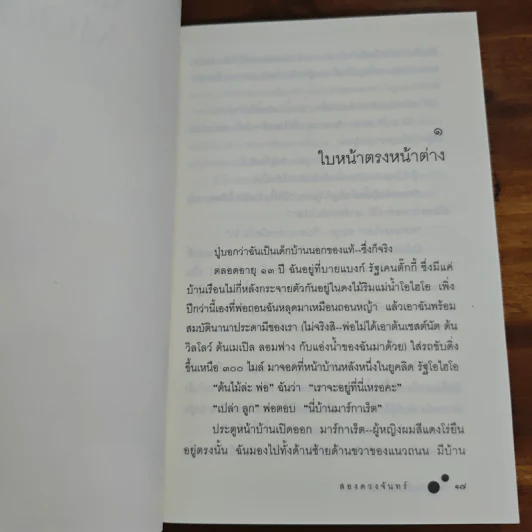 ๑
ใบหน้าตรงหน้าต่าง
ปู่บอกว่าฉันเป็นเด็กบ้านนอกของแท้--ซึ่งก็จริง
ตลอดอายุ ๑๓ ปี ฉันอยู่ที่บายแบงก์ รัฐเคนตั๊กกี้ ซึ่งมีแค่
บ้านเรือนไม่กี่หลังกระจายตัวกันอยู่ในดงไม้ริมแม่น้ำโอไฮโอ เพิ่ง
ปีกว่านี้เองที่พ่อถอนฉันหลุดมาเหมือนถอนหญ้า แล้วเอาฉันพร้อม
สมบัตินานาประดามีของเรา (ไม่จริงสิ--พ่อไม่ได้เอาต้นเชสต์นัต ต้น
วิลโลว์ ต้นเมเปิล ลอมฟาง กับแอ่งน้ำของฉันมาด้วย) ใส่รถขับดิ่ง
ขึ้นเหนือ ๓๐๐ ไมล์ มาจอดที่หน้าบ้านหลังหนึ่งในยูคลิด รัฐโอไฮโอ
“ต้นไม้ล่ะ พ่อ” ฉันว่า “เราจะอยู่ที่นี่เหรอคะ”
“เปล่า ลูก” พ่อตอบ “นี่บ้านมาร์กาเร็ต”
ประตูหน้าบ้านเปิดออก มาร์กาเร็ต--ผู้หญิงผมสีแดงโร่ยืน
อยู่ตรงนั้น ฉันมองไปทั้งด้านซ้ายด้านขวาของแนวถนน มีบ้าน
สองดวงจันทร์
๑๗